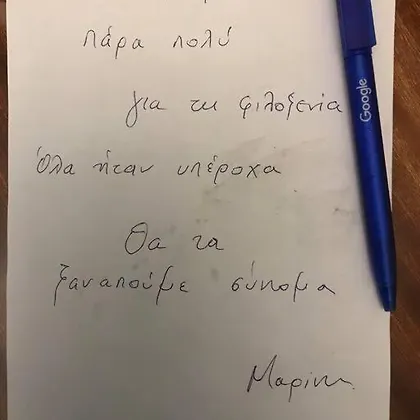 πάρα πολύ
για τη φιλοξενία
Όλα ήταν υπέροχα
Θα τα
ξαναπούμε σύντομα
Μαρίνη
Google